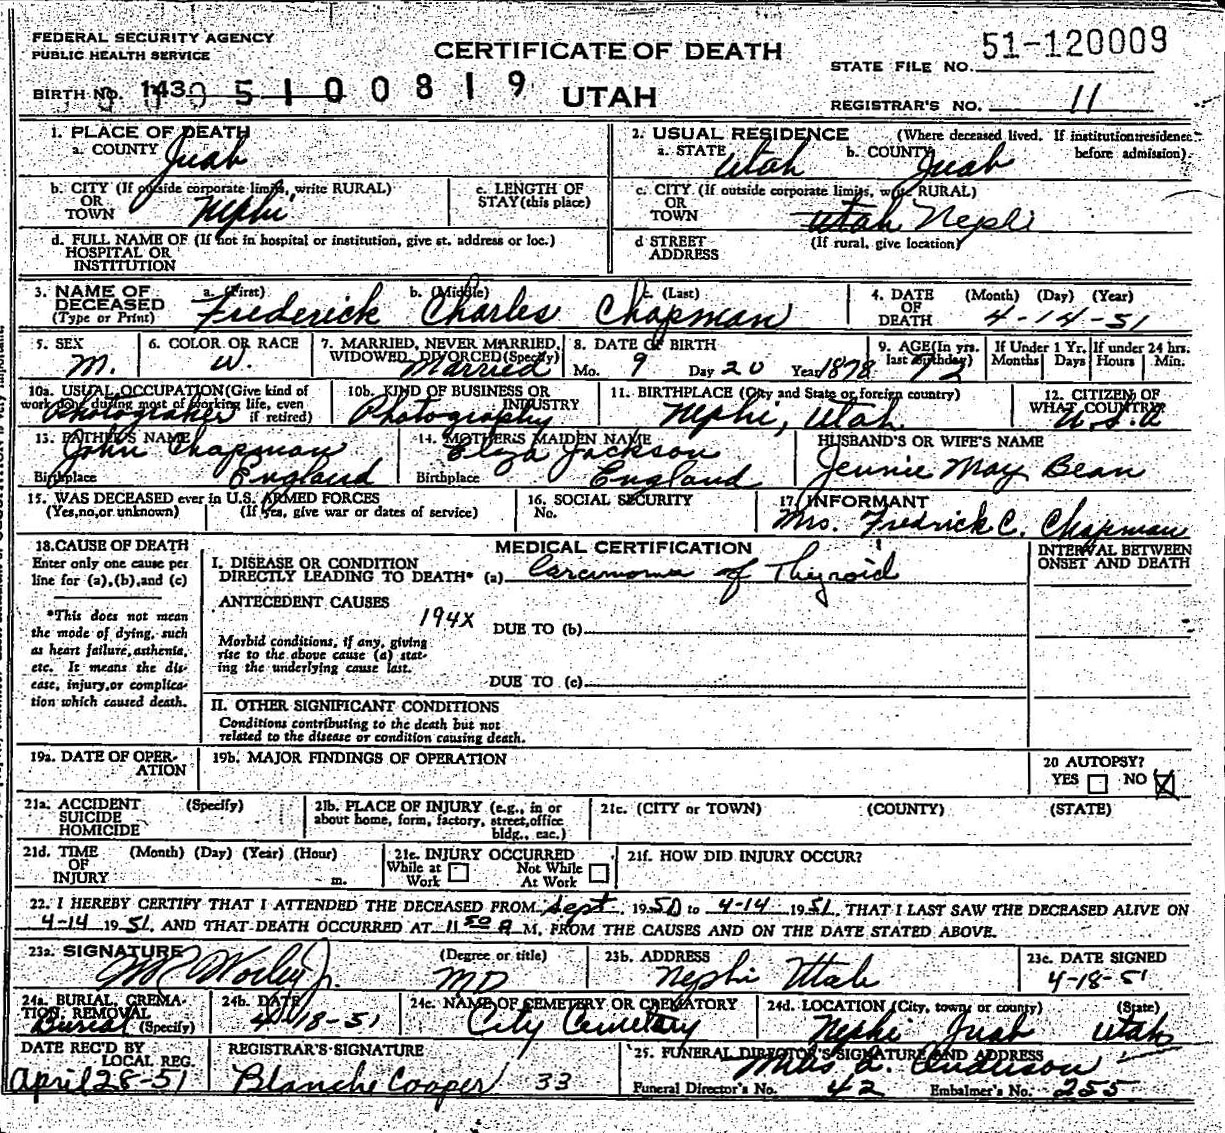 FEDERAL SECURITY AGENCY
PUBLIC HEALTH SERVICE
CERTIFICATE OF DEATH
STATE FILE NO. 51-120009
BIRTH NO. 143 0 5 1 0 0 8 1 9
UTAH
REGISTRAR'S NO. 11
1. PLACE OF DEATH
a. COUNTY Juab
2. USUAL RESIDENCE (Where deceased lived. If institution: residence before admission).
a. STATE Utah b. COUNTY Juab
b. CITY (If outside corporate limits, write RURAL) OR TOWN Nephi
c. LENGTH OF STAY (this place)
c. CITY (If outside corporate limits, write RURAL) OR TOWN Utah Nephi
d. FULL NAME OF (If not in hospital or institution, give st. address or loc.) HOSPITAL OR INSTITUTION
d STREET ADDRESS (If rural, give location)
3. NAME OF DECEASED (Type or Print) a. (First) Frederick b. (Middle) Charles c. (Last) Chapman
4. DATE OF DEATH (Month) (Day) (Year) 4-14-51
5. SEX M.
6. COLOR OR RACE W.
7. MARRIED, NEVER MARRIED, WIDOWED, DIVORCED (Specify) Married
8. DATE OF BIRTH Mo. 9 Day 20 Year 1878
9. AGE (In yrs. last birthday) 72
If Under 1 Yr. Months Days
If under 24 hrs. Hours Min.
10a. USUAL OCCUPATION (Give kind of work done during most of working life, even if retired) Photographer
10b. KIND OF BUSINESS OR INDUSTRY Photography
11. BIRTHPLACE (City and State or foreign country) Nephi, Utah
12. CITIZEN OF WHAT COUNTRY U.S.A
13. FATHER'S NAME John Chapman
Birthplace England
14. MOTHER'S MAIDEN NAME Eliza Jackson
Birthplace England
HUSBAND'S OR WIFE'S NAME
Jennie May Bean
15. WAS DECEASED ever in U.S. ARMED FORCES
(Yes, no, or unknown) (If yes, give war or dates of service)
16. SOCIAL SECURITY No.
17. INFORMANT
Mrs. Fredrick C. Chapman
18. CAUSE OF DEATH
Enter only one cause per line for (a), (b), and (c)
*This does not mean the mode of dying, such as heart failure, asthenia, etc. It means the disease, injury, or complication which caused death.
MEDICAL CERTIFICATION
INTERVAL BETWEEN ONSET AND DEATH
I. DISEASE OR CONDITION DIRECTLY LEADING TO DEATH* (a) Carcinoma of Thyroid
ANTECEDENT CAUSES
194X
DUE TO (b)
Morbid conditions, if any, giving rise to the above cause (a) stating the underlying cause last.
DUE TO (c)
II. OTHER SIGNIFICANT CONDITIONS
Conditions contributing to the death but not related to the disease or condition causing death.
19a. DATE OF OPERATION
19b. MAJOR FINDINGS OF OPERATION
20 AUTOPSY? YES NO X
21a. ACCIDENT SUICIDE HOMICIDE (Specify)
21b. PLACE OF INJURY (e.g., in or about home, form, factory, street, office bldg., eac.)
21c. (CITY or TOWN) (COUNTY) (STATE)
21d. TIME OF INJURY (Month) (Day) (Year) (Hour) m.
21e. INJURY OCCURRED While at Work Not While At Work
21f. HOW DID INJURY OCCUR?
22. I HEREBY CERTIFY THAT I ATTENDED THE DECEASED FROM Sept, 1950 to 4-14 1951, THAT I LAST SAW THE DECEASED ALIVE ON
4-14 1951, AND THAT DEATH OCCURRED AT 11 50 A M. FROM THE CAUSES AND ON THE DATE STATED ABOVE.
23a. SIGNATURE (Degree or title) MD
23b. ADDRESS Nephi Utah
23c. DATE SIGNED 4-18-51
24a. BURIAL, CREMATION, REMOVAL (Specify) Burial
24b. DATE 4-18-51
24c. NAME OF CEMETERY OR CREMATORY City Cemetary
24d. LOCATION (City, town, or county) (State) Nephi Juab Utah
DATE REC'D BY LOCAL REG. April 28-51
REGISTRAR'S SIGNATURE
Blanche Cooper 33
25. FUNERAL DIRECTOR'S SIGNATURE AND ADDRESS
Miles L. Anderson
Funeral Director's No. 42 Embalmer's No. 255